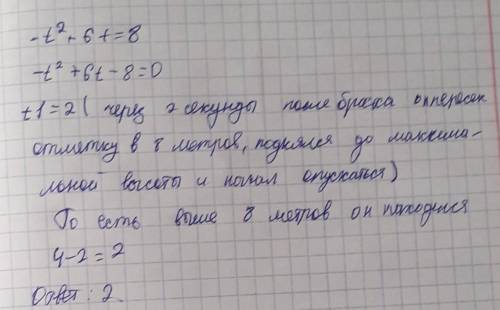 -t² + 6t = 8
-t² + 6t - 8 = 0
t1 = 2 ( через 2 секунды после броска он пересек
отметку в 8 метров, поднялся до максима-
льной высоты и начал опускаться)
То есть выше 8 метров он находился
4-2 = 2
Ответ: 2.